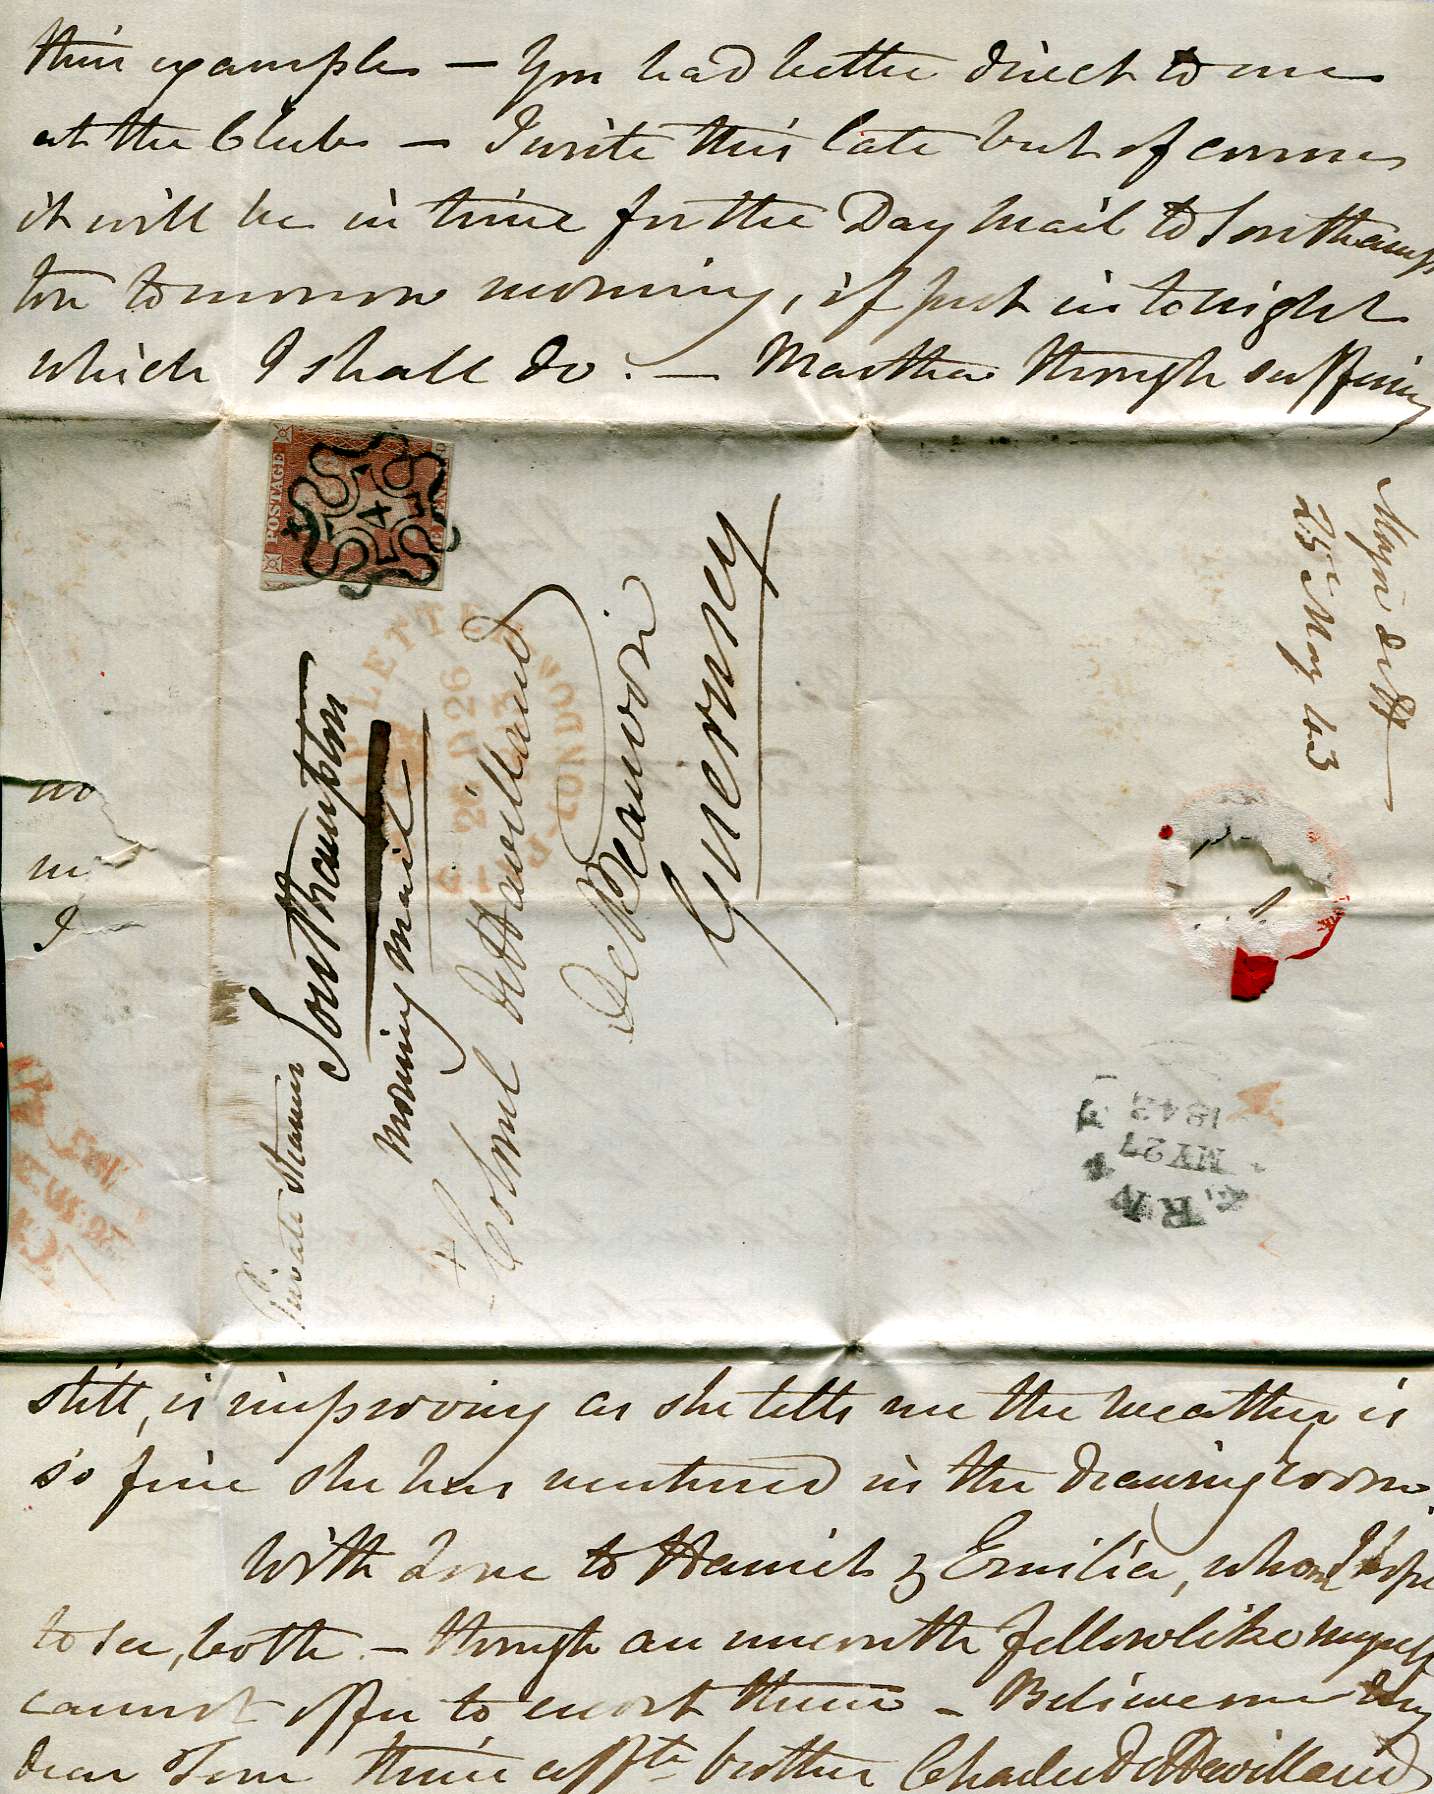 their example — You had better direct to me
at the Club — I write this late but of course
it will be in time for the Day Mail to Southamp
ton tomorrow morning, if put in tonight
which I shall do. — Martha though suffering
POSTAGE
Private Steamer
Southampton
Morning Mail
Colonel De Havilland
De Beauvoir
Guernsey
25 May 43
MY 27
no
I
still, is improving as she tells me the weather is
so fine she has ventured in the drawing room.
With Love to Harriet & Emilia, whom I hope
to see, both — though an uncouth fellow like myself
cannot offer to escort them — Believe me my
dear Tom thine affte brother Charles De Havilland